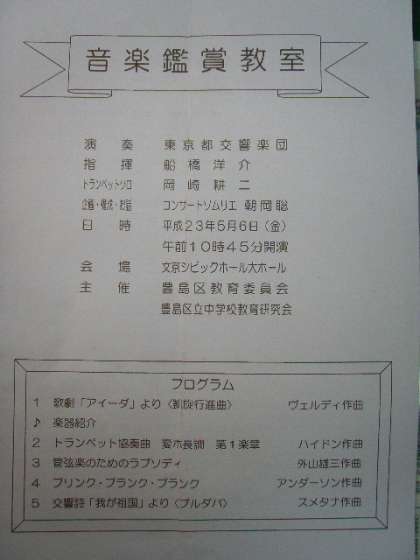 音楽鑑賞教室
演奏 東京都交響楽団
指揮 船橋洋介
トランペットソロ 岡崎耕二
企画・構成・お話 コンサートソムリエ 朝岡聡
日時 平成23年5月6日(金)
午前10時45分開演
会場 文京シビックホール大ホール
主催 豊島区教育委員会
豊島区立中学校教育研究会
プログラム
1 歌劇「アイーダ」より〈凱旋行進曲〉 ヴェルディ作曲
♪ 楽器紹介
2 トランペット協奏曲 変ホ長調 第1楽章 ハイドン作曲
3 管弦楽のためのラプソディ 外山雄三作曲
4 プリンク・プランク・プランク アンダーソン作曲
5 交響詩「我が祖国」より〈ブルダバ〉 スメタナ作曲